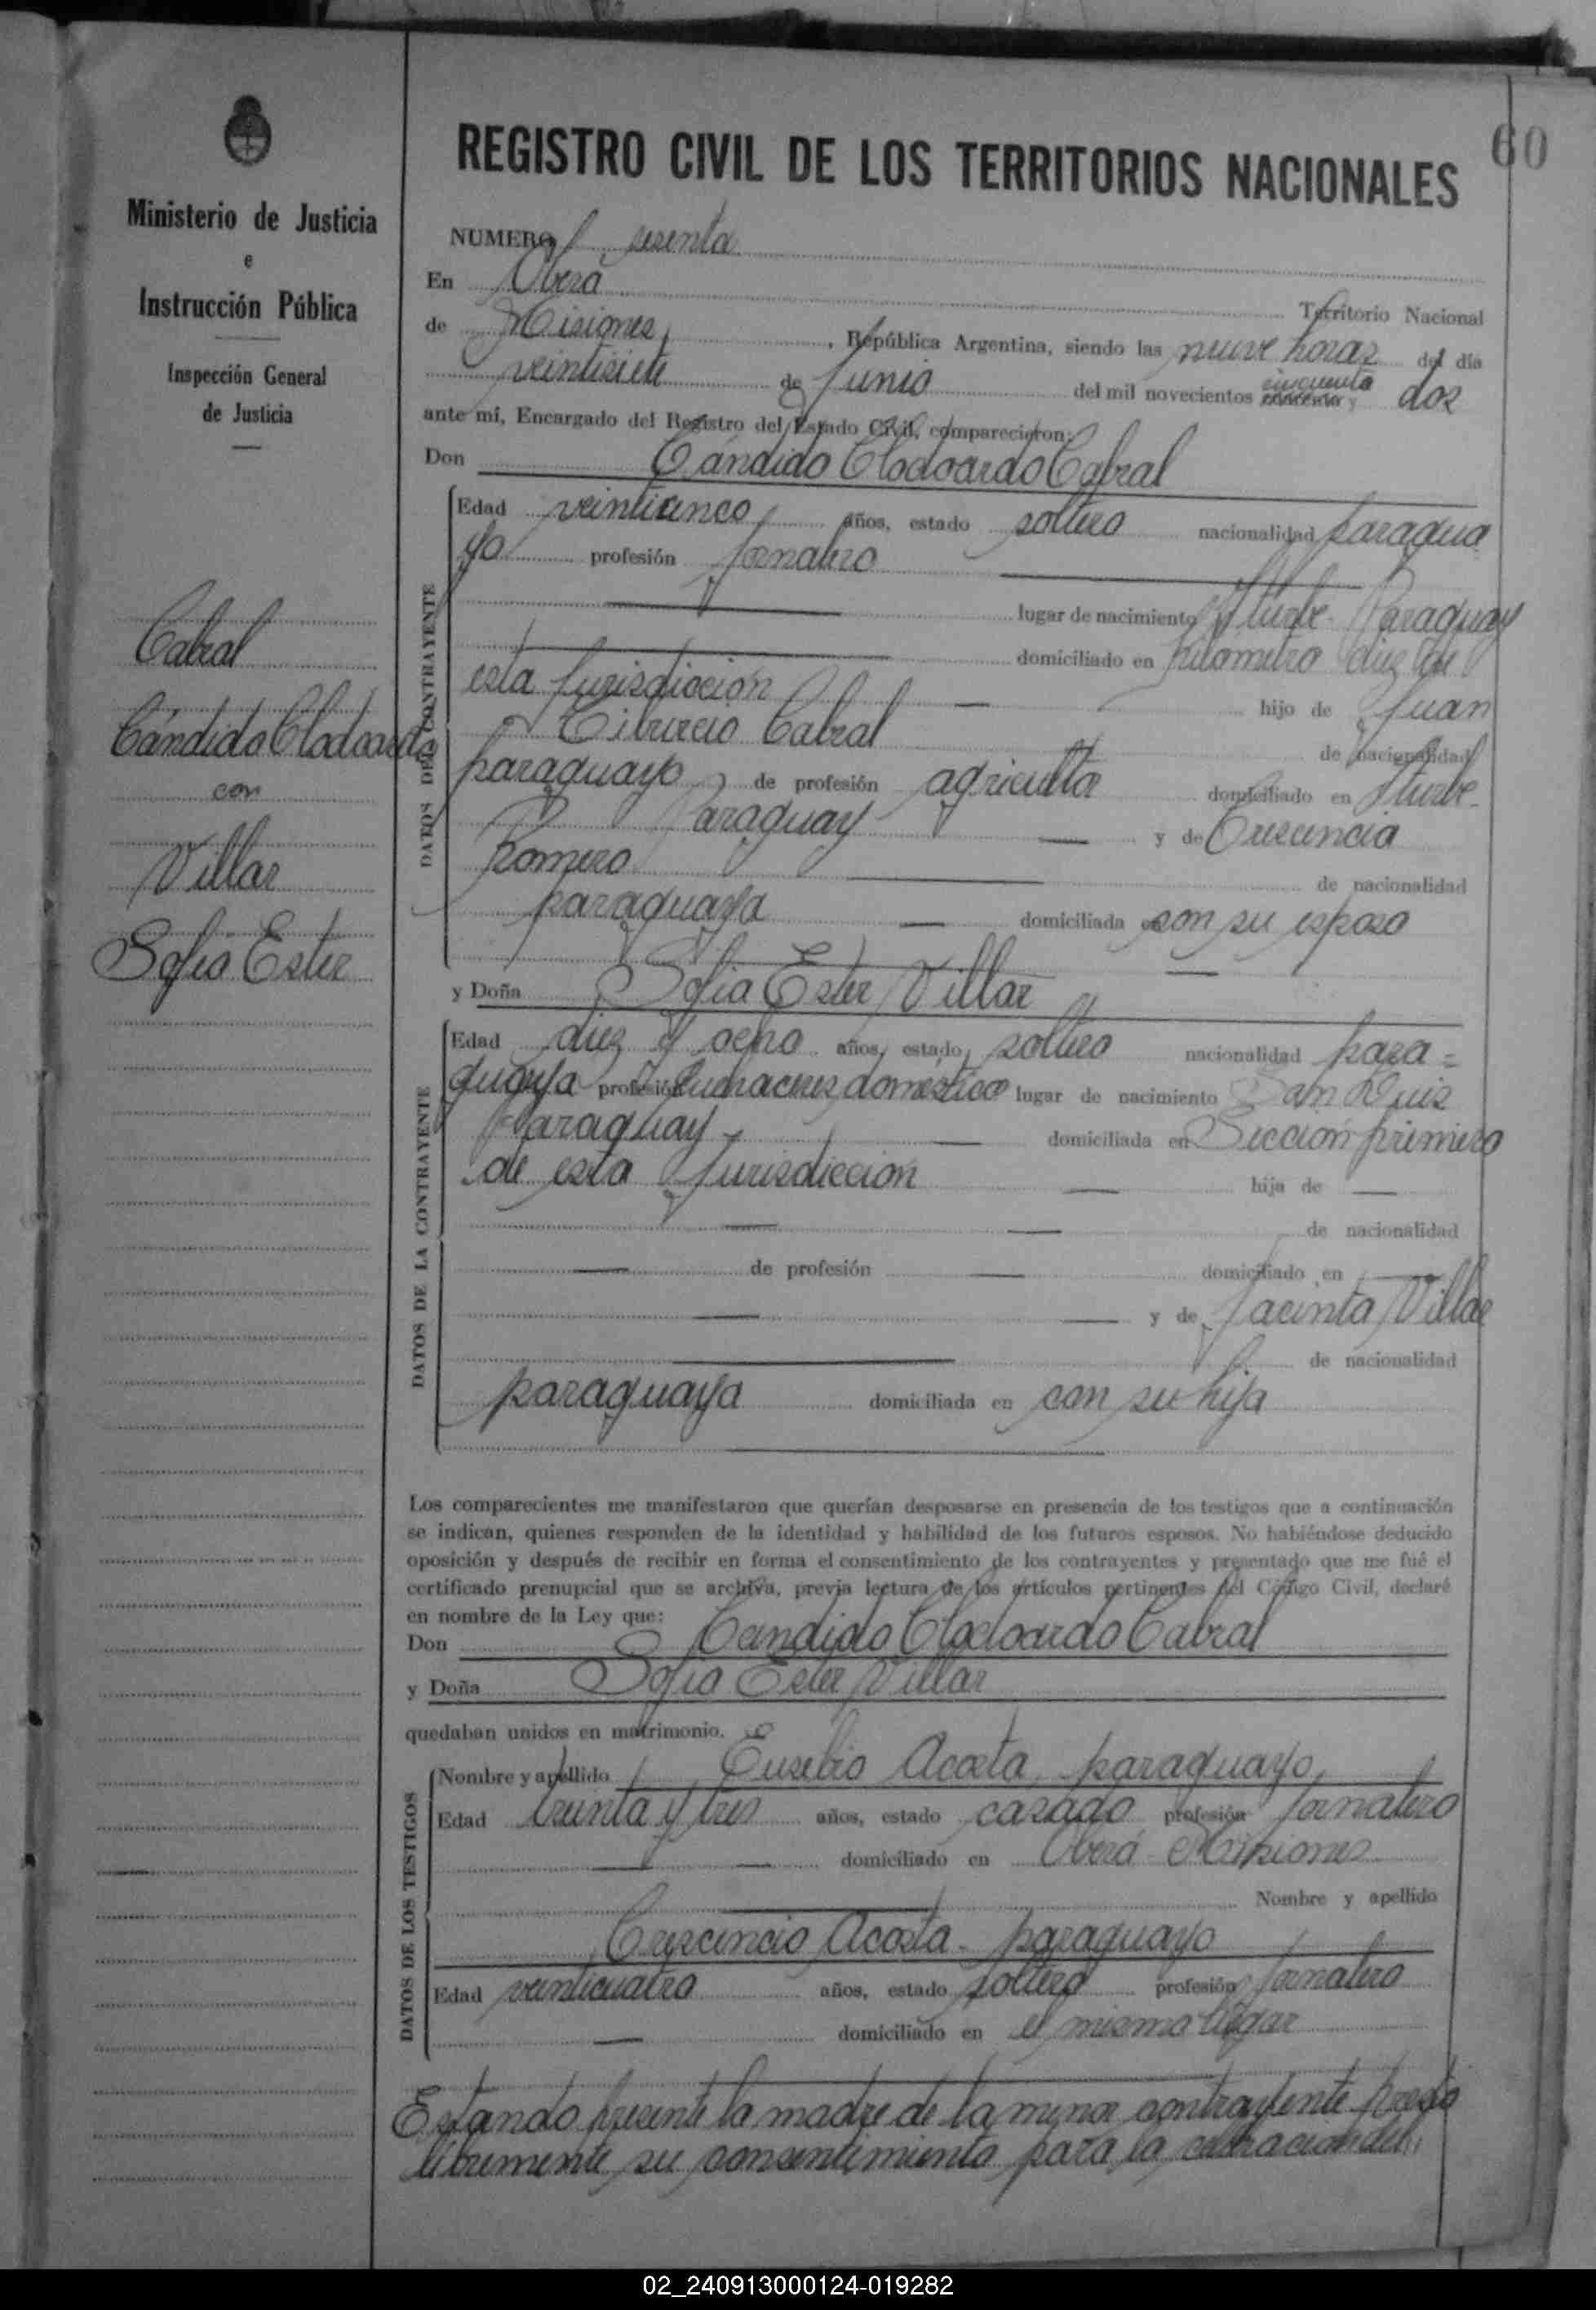 Ministerio de Justicia
e
Instrucción Pública
Inspección General
de Justicia
Cabral
Cándido Clodoardo
con
Villar
Sofia Ester
60
REGISTRO CIVIL DE LOS TERRITORIOS NACIONALES
NUMERO sesenta
En Oberá Territorio Nacional
de Misiones, República Argentina, siendo las nueve horas del día
veintisiete de Junio del mil novecientos cincuenta y dos
ante mí, Encargado del Registro del Estado Civil, comparecieron:
Don Cándido Clodoardo Cabral
DATOS DEL CONTRAYENTE
Edad veinticinco años, estado soltero nacionalidad paragua
yo profesión Jornalero
lugar de nacimiento Iturbe - Paraguay
domiciliado en kilometro diez de
esta Jurisdicción hijo de Juan
Tiburcio Cabral de nacionalidad
paraguayo de profesión agricultor domiciliado en Iturbe-
Paraguay y de Crescencia
Romero de nacionalidad
paraguaya domiciliada en con su esposo
y Doña Sofia Ester Villar
DATOS DE LA CONTRAYENTE
Edad diez y ocho años, estado soltero nacionalidad para=
guaya profesión quehaceres domestico lugar de nacimiento San Luis
Paraguay domiciliada en Sección primera
de esta Jurisdicción hija de
de nacionalidad
de profesión domiciliado en
y de Jacinta Villar
de nacionalidad
paraguaya domiciliada en con su hija
Los comparecientes me manifestaron que querían desposarse en presencia de los testigos que a continuación
se indican, quienes responden de la identidad y habilidad de los futuros esposos. No habiéndose deducido
oposición y después de recibir en forma el consentimiento de los contrayentes y presentado que me fué el
certificado prenupcial que se archiva, previa lectura de los artículos pertinentes del Código Civil, declaré
en nombre de la Ley que:
Don Candido Clodoardo Cabral
y Doña Sofia Ester Villar
quedaban unidos en matrimonio.
DATOS DE LOS TESTIGOS
Nombre y apellido Eusebio Acosta, paraguayo,
Edad treinta y tres años, estado casado profesión Jornalero
domiciliado en Oberá Misiones
Nombre y apellido
Crescencio Acosta - paraguayo
Edad veinticuatro años, estado soltero profesión Jornalero
domiciliado en el mismo lugar
Estando presente la madre de la menor contrayente prestó
libremente su consentimiento para la celebración del
02_240913000124-019282